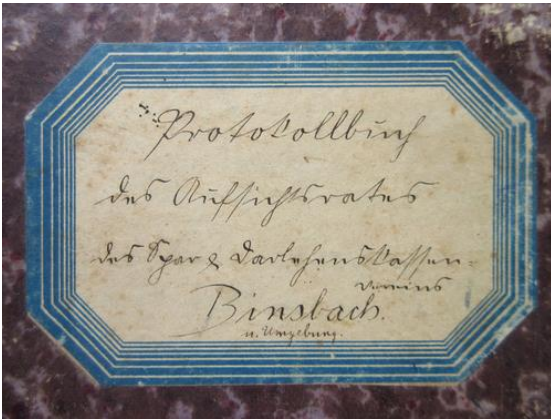 Protokollbuch
des Aufsichtsrates
des Spar & Darlehenskassen-
Vereins
Binsbach.
u. Umgebung.